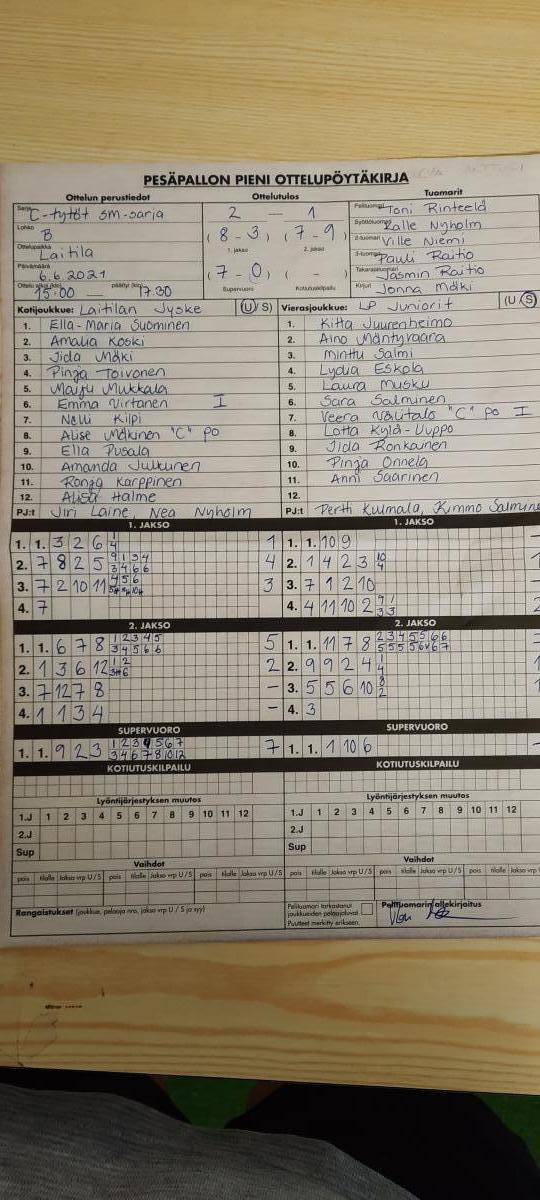 PESÄPALLON PIENI OTTELUPÖYTÄKIRJA
Ottelun perustiedot Ottelutulos Tuomarit
Sarja C-tytöt sm-sarja 2 — 1 Pelituomari Toni Rinteelä
Lohko B (8-3) (7-9) Syöttötuomari Kalle Nyholm
1. jakso 2. jakso 2-tuomari Ville Niemi
Ottelupaikka Laitila 3-tuomari Pauli Raitio
Päivämäärä 6.6.2021 (7-0) ( - ) Takarajatuomari Jasmin Raitio
Supervuoro Kotiutuskilpailu
Ottelu alkoi (klo) 15:00 — päättyi (klo) 17.30 Kirjuri Jonna Mäki
Kotijoukkue: Laitilan Jyske (U/S) Vierasjoukkue: LP Juniorit (U/S)
1. Ella-Maria Suominen 1. Kitta Juurenheimo
2. Amalia Koski 2. Aino Mäntyvaara
3. Jida Mäki 3. Minttu Salmi
4. Pinja Toivonen 4. Lydia Eskola
5. Maiju Mukkala 5. Laura Musku
6. Emma Virtanen I 6. Sara Salminen
7. Nelli Kilpi 7. Veera Välitalo "C" po I
8. Alise Mäkinen "C" po 8. Lotta Kylä-Uuppo
9. Ella Pusala 9. Jida Ronkainen
10. Amanda Julkunen 10. Pinja Onnela
11. Ronja Karppinen 11. Anni Saarinen
12. Alisa Halme 12.
PJ:t Jiri Laine, Nea Nyholm PJ:t Pertti Kulmala, Kimmo Salmine
1. JAKSO 1. JAKSO
1. 1. 3 2 6 1/4 1 1. 1. 10 9 -
2. 7 8 2 5 4 2. 1 4 2 3 10/4
3. 7 2 10 11 3 3. 7 1 2 10 -
4. 7 4. 4 11 10 2
2. JAKSO 2. JAKSO
1. 1. 6 7 8 1 2 3 4 5 / 3 4 5 6 6 5 1. 1. 11 7 8
2. 1 3 6 12 2 2. 9 9 2 4 1/4
3. 7 12 7 8 - 3. 5 5 6 10 8/2
4. 1 1 3 4 - 4. 3
SUPERVUORO SUPERVUORO
1. 1. 9 2 3 1 2 3 4 5 6 7 / 3 4 6 7 8 10 12 7 1. 1. 1 10 6 -
KOTIUTUSKILPAILU KOTIUTUSKILPAILU
Lyöntijärjestyksen muutos Lyöntijärjestyksen muutos
1.J 1 2 3 4 5 6 7 8 9 10 11 12 1.J 1 2 3 4 5 6 7 8 9 10 11 12
2.J 2.J
Sup Sup
Vaihdot Vaihdot
pois tilalle Jakso vrp U/S pois tilalle Jakso vrp U/S pois tilalle Jakso vrp U/S pois tilalle Jakso vrp U/S
Rangaistukset (joukkue, pelaaja nro, jakso vrp U / S ja syy) Pelituomari tarkastanut joukkueiden pelaajaluvat Pelituomarin allekirjoitus
Puutteet merkitty erikseen.